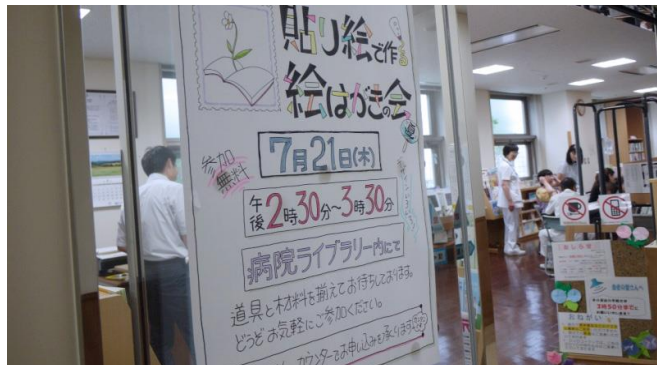 貼り絵で作る
絵はがきの会
参加
無料
7月21日(木)
午後2時30分～3時30分
病院ライブラリー内にて
道具と材料を揃えてお待ちしております。
どうぞお気軽にご参加ください。
カウンターでお申し込みを承ります
3時50分までに
おねがい